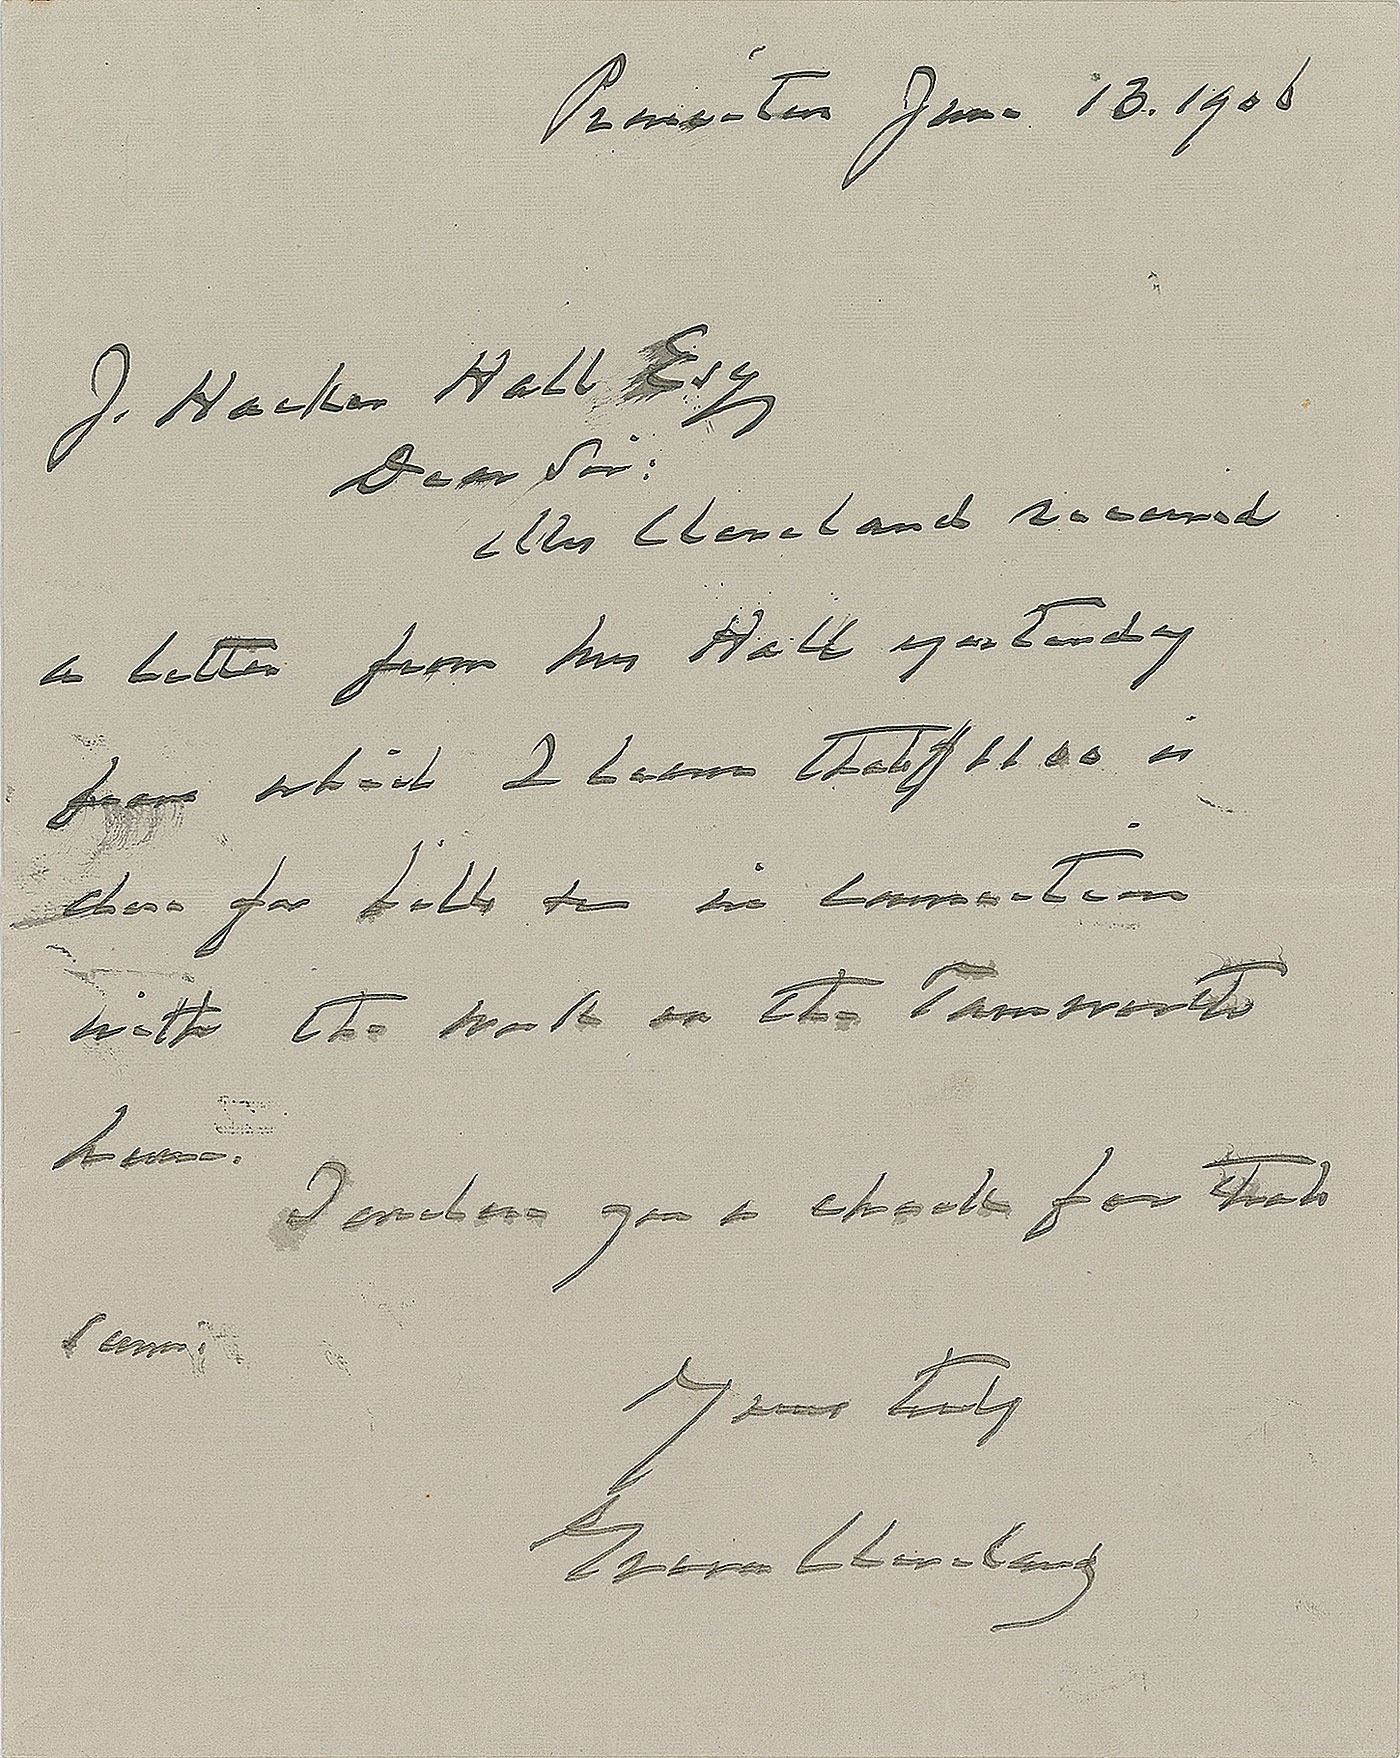 Princeton June 13. 1906
J. Hacker Hall Esq
Dear Sir:
Mrs Cleveland received
a letter from Mrs Hall yesterday
from which I learn that $1100 is
due for bills &c in connection
with the work on the Tamworth
house.
I enclose you a check for that
sum:
Yours truly
Grover Cleveland